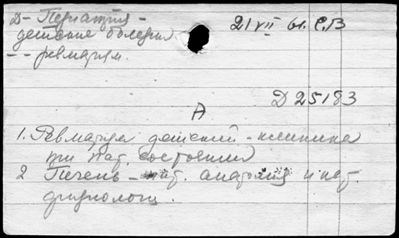 Д - Педиатрия -
детские болезни
-- ревматизм.
21 VII 61. С.В
Д 25183
А
1. Ревматизм детский - клиника
при пат. состоянии
2 Печень - пат. анатомия и пат.
физиолог.